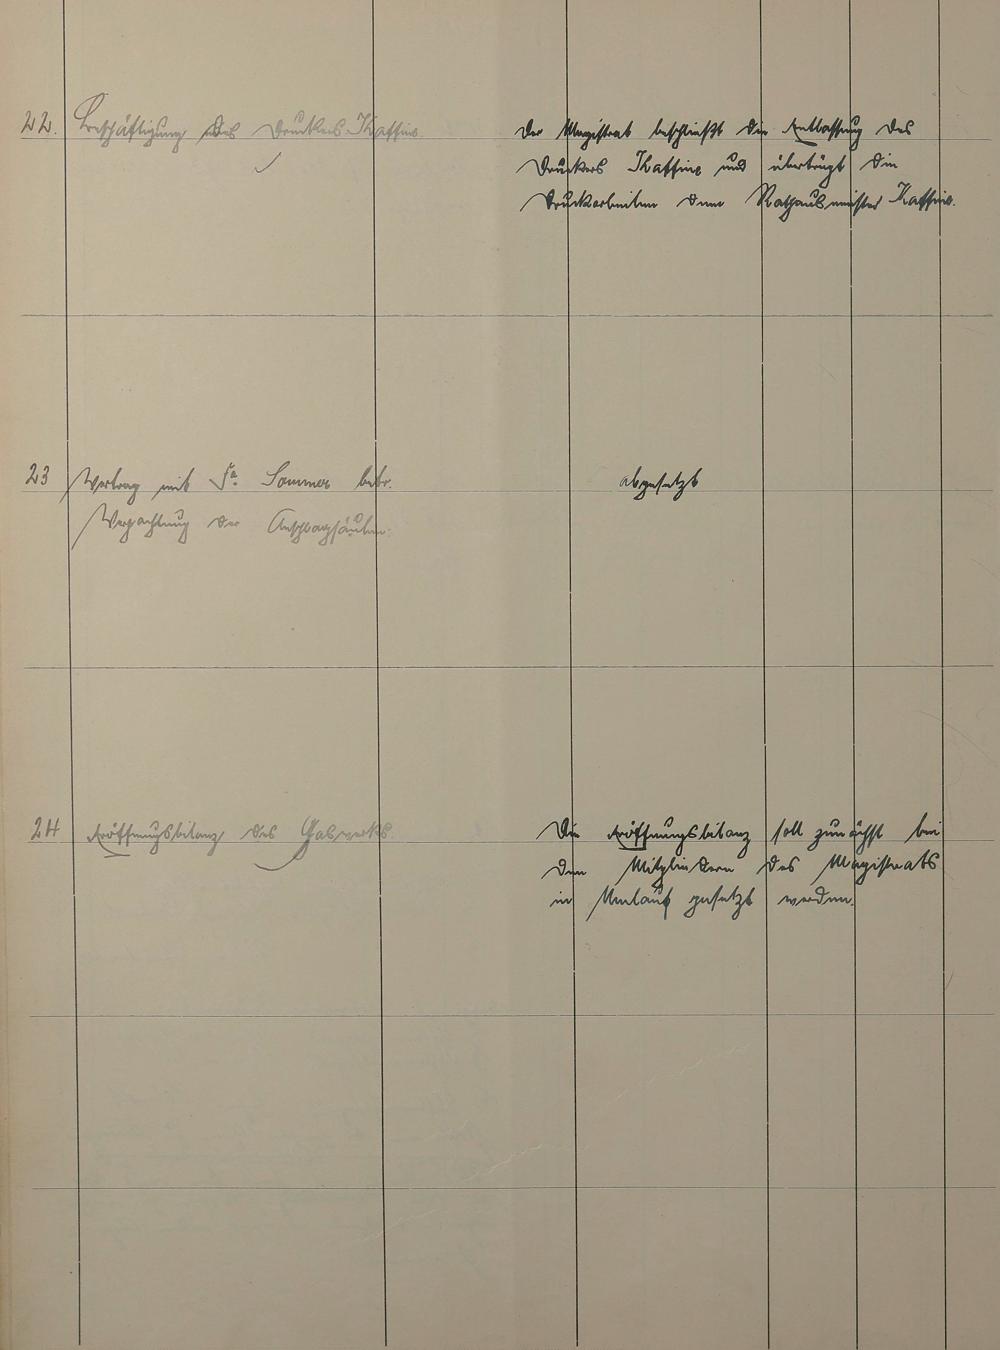 22. Beschäftigung des Druckers Kassing.
Der Magistrat beschließt die Entlassung des
Druckers Kassing und überträgt die
Druckarbeiten dem Rathausmeister
23 Vertrag mit Fa. Sommer betr.
Verpachtung der Anschlagsäulen.
abgesetzt
24 Eröffnungsbilanz des Gaswerks.
Die Eröffnungsbilanz soll zunächst bei
den Mitgliedern des Magistrats
in Umlauf gesetzt werden.